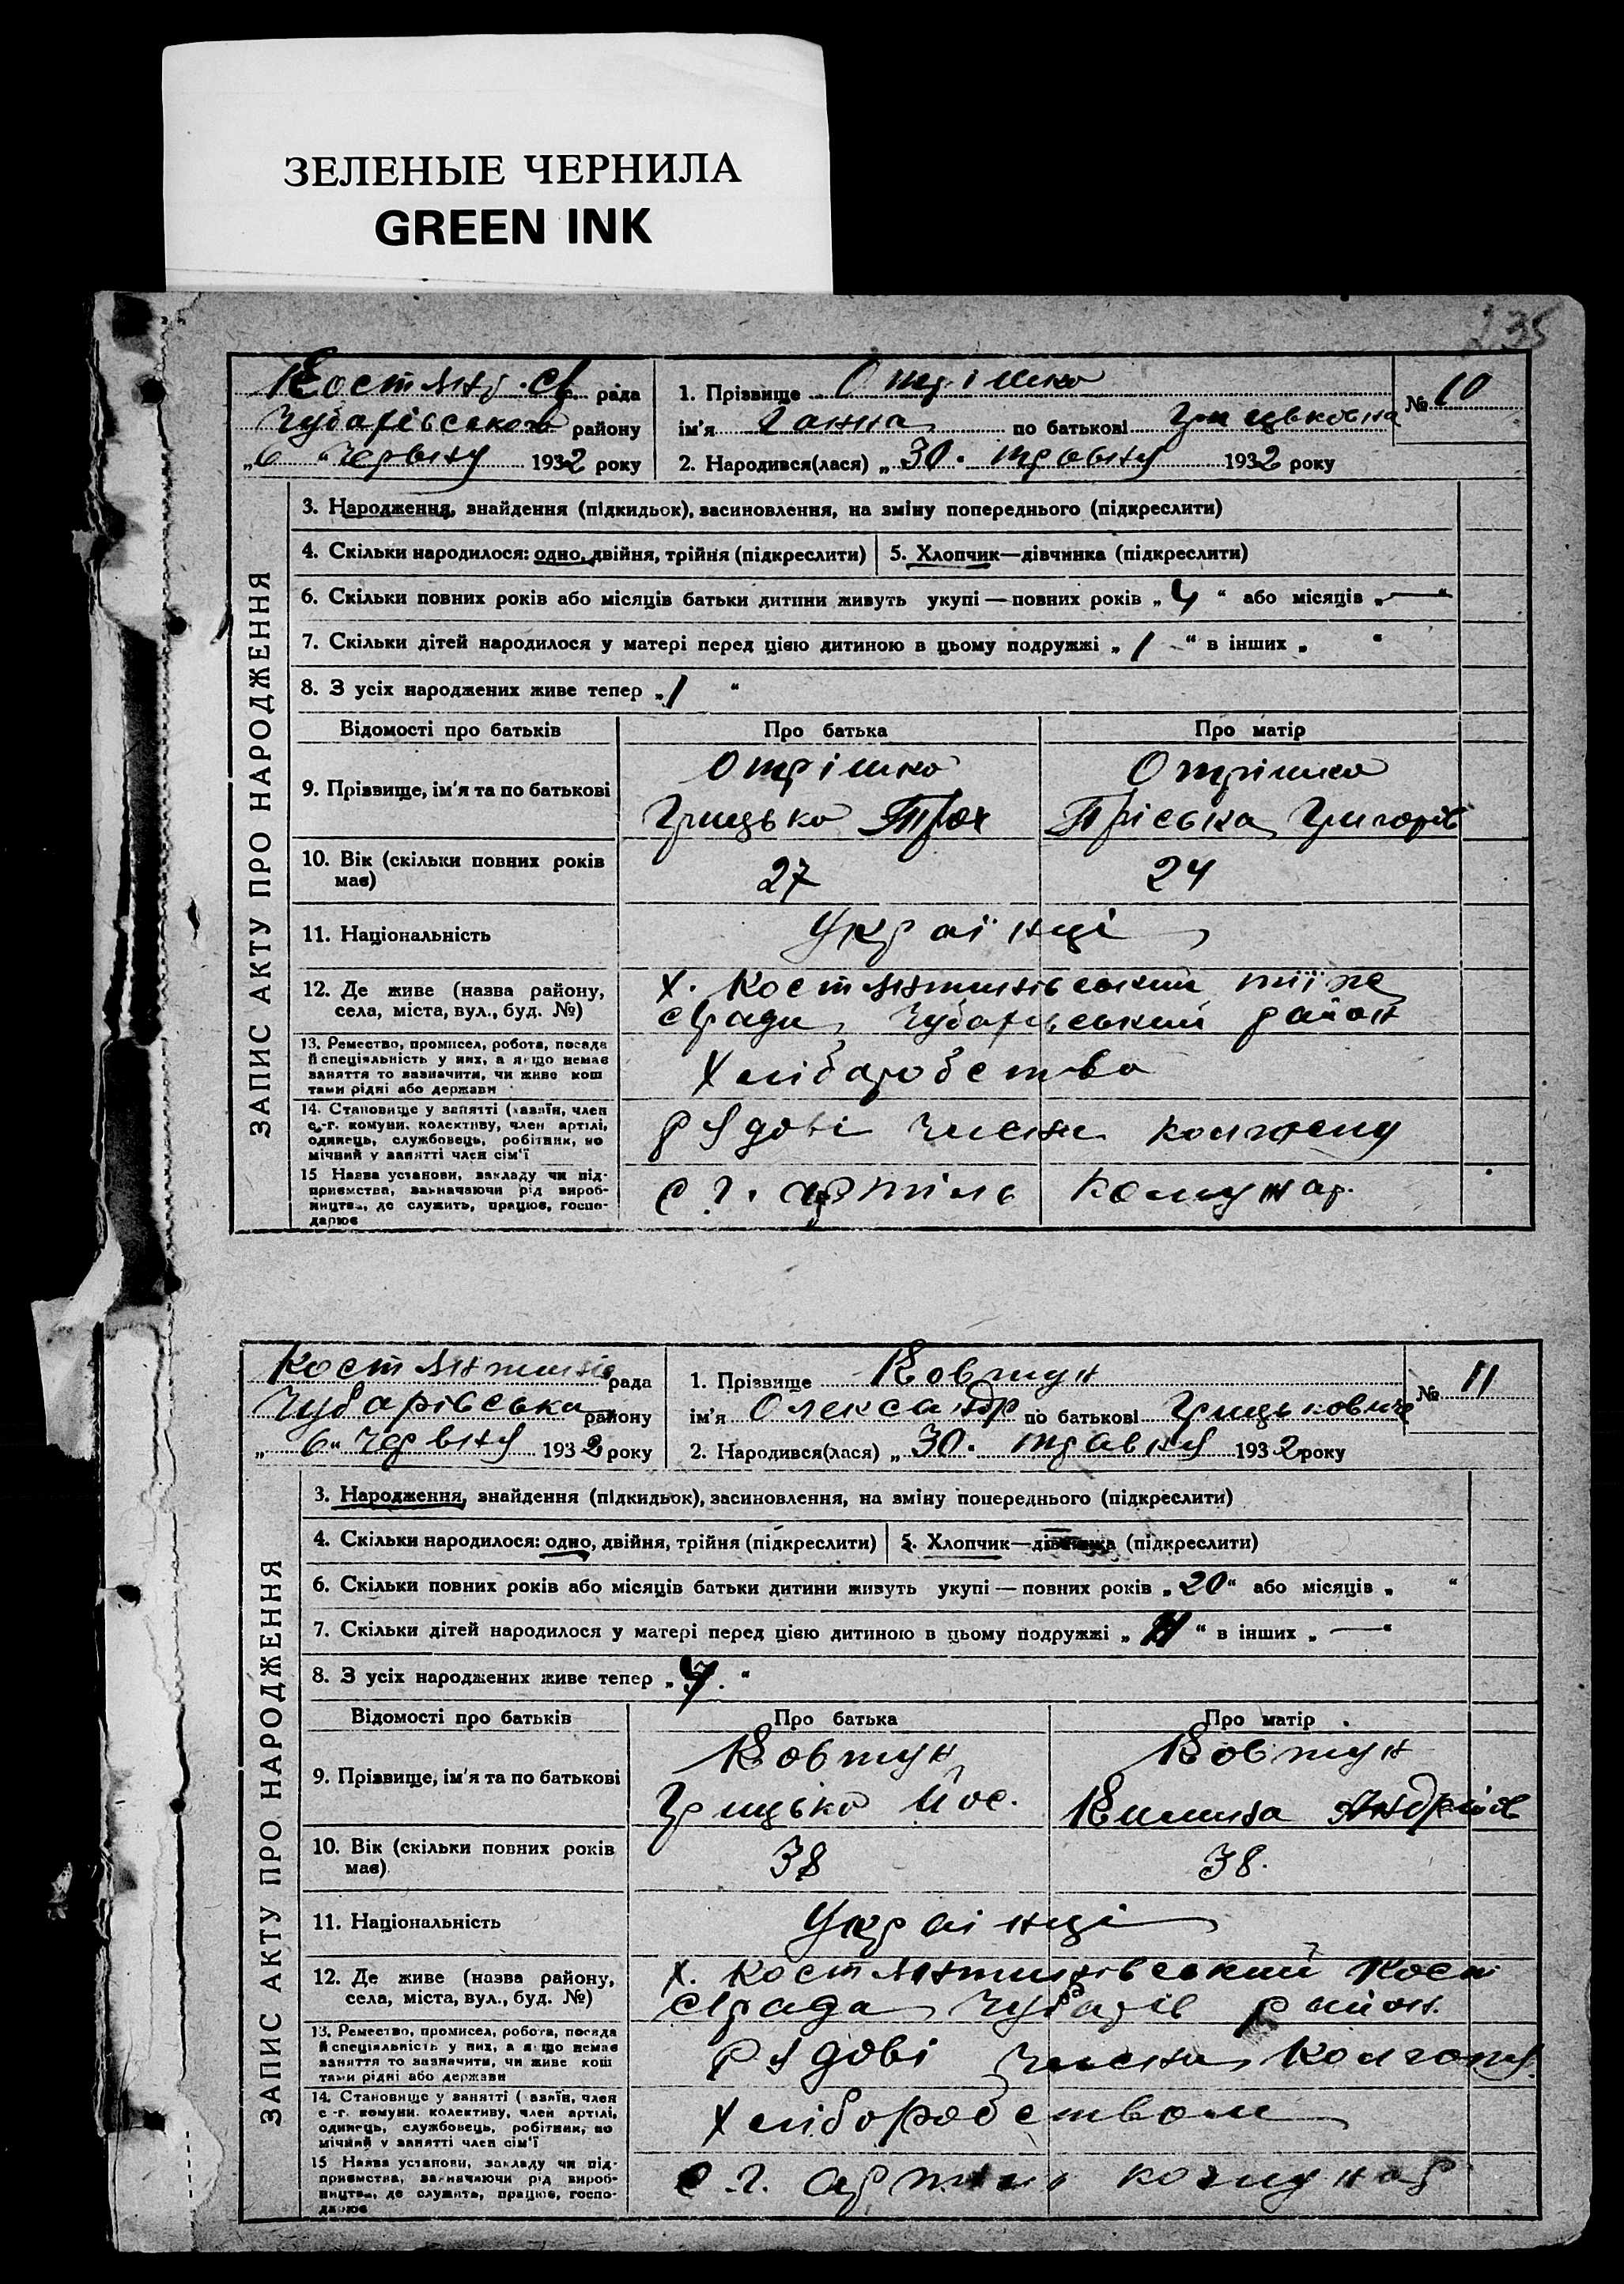 ЗЕЛЕНЫЕ ЧЕРНИЛА
GREEN INK
235
ЗАПИС АКТУ ПРО НАРОДЖЕННЯ
рада
Чубарівського району
„6 " червня 1932 року
1. Прізвище Отрішко
ім'я Ганна по батькові Грицьковна
№ 10
2. Народився(лася) „ 30. травня 1932 року
3. Народження, знайдення (підкидьок), засиновлення, на зміну попереднього (підкреслити)
4. Скільки народилося: одно, двійня, трійня (підкреслити)
5. Хлопчик—дівчинка (підкреслити)
6. Скільки повних років або місяців батьки дитини живуть укупі — повних років „ 4 “ або місяців „ — “
7. Скільки дітей народилося у матері перед цією дитиною в цьому подружжі „ 1 “ в інших „ “
8. З усіх народжених живе тепер „ 1 “
Відомості про батьків Про батька Про матір
9. Прізвище, ім'я та по батькові
Отрішко
Грицько Трох
Отрішко
Пріська Григорів
10. Вік (скільки повних років має)
27
24
11. Національність
Українці
12. Де живе (назва району,
села, міста, вул., буд. №)
х. Костянтинівський тіїже
с/ради Чубарівський район
13. Ремество, промисел, робота, посада
й спеціяльність у них, а якщо немає
заняття то зазначити, чи живе кош
тами рідні або держави
Хліборобство
14. Становище у занятті (хазяїн, член
с.-г. комуни, колективу, член артілі,
одинець, службовець, робітник, по
мічний у занятті член сім'ї
Рядові члени колгоспу
15 Назва установи, закладу чи під-
приємства, зазначаючи рід вироб-
ництва, де служить, працює, госпо-
дарює
с.г. артіль Комунар.
ЗАПИС АКТУ ПРО НАРОДЖЕННЯ
Костянтинів рада
Чубарівська району
„ 6 “ червня 1932 року
1. Прізвище Ковтун
ім'я Олександр по батькові Грицькович
№ 11
2. Народився(лася) „ 30. травня 1932 року
3. Народження, знайдення (підкидьок), засиновлення, на зміну попереднього (підкреслити)
4. Скільки народилося: одно, двійня, трійня (підкреслити)
5. Хлопчик—дівчинка (підкреслити)
6. Скільки повних років або місяців батьки дитини живуть укупі — повних років „ 20 “ або місяців „ “
7. Скільки дітей народилося у матері перед цією дитиною в цьому подружжі „ “ в інших „ — “
8. З усіх народжених живе тепер „ “
Відомості про батьків Про батька Про матір
9. Прізвище, ім'я та по батькові
Ковтун
Грицько Йос.
Ковтун
Килина Андріїв
10. Вік (скільки повних років має)
38
38.
11. Національність
Українці
12. Де живе (назва району,
села, міста, вул., буд. №)
х. Костянтинівський Кост
с/рада Чубарів район.
13. Ремество, промисел, робота, посада
й спеціяльність у них, а якщо немає
заняття то зазначити, чи живе кош
тами рідні або держави
Рядові члени Колгоспу.
14. Становище у занятті (хазяїн, член
с.-г. комуни, колективу, член артілі,
одинець, службовець, робітник, по
мічний у занятті член сім'ї
Хліборобством
15 Назва установи, закладу чи під-
приємства, зазначаючи рід вироб-
ництва, де служить, працює, госпо-
дарює
с.г. артіль комунар